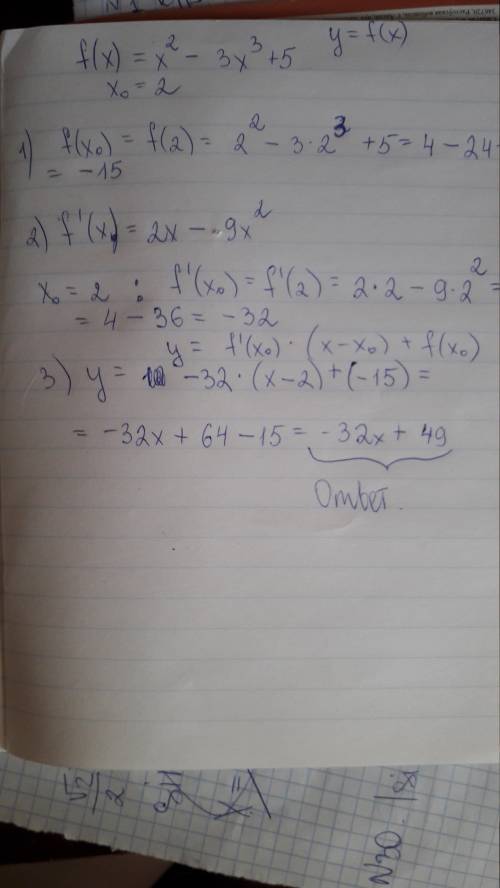 f(x) = x² - 3x³ + 5    y = f(x)
x₀ = 2
1) f(x₀) = f(2) = 2² - 3·2³ + 5 = 4 - 24
= -15
2) f'(x) = 2x - 9x²
x₀ = 2 : f'(x₀) = f'(2) = 2·2 - 9·2² =
= 4 - 36 = -32
y = f'(x₀)·(x-x₀) + f(x₀)
3) y = -32·(x-2)+(-15) =
= -32x + 64 - 15 = -32x + 49
Ответ.
√2/2
x=
N30.